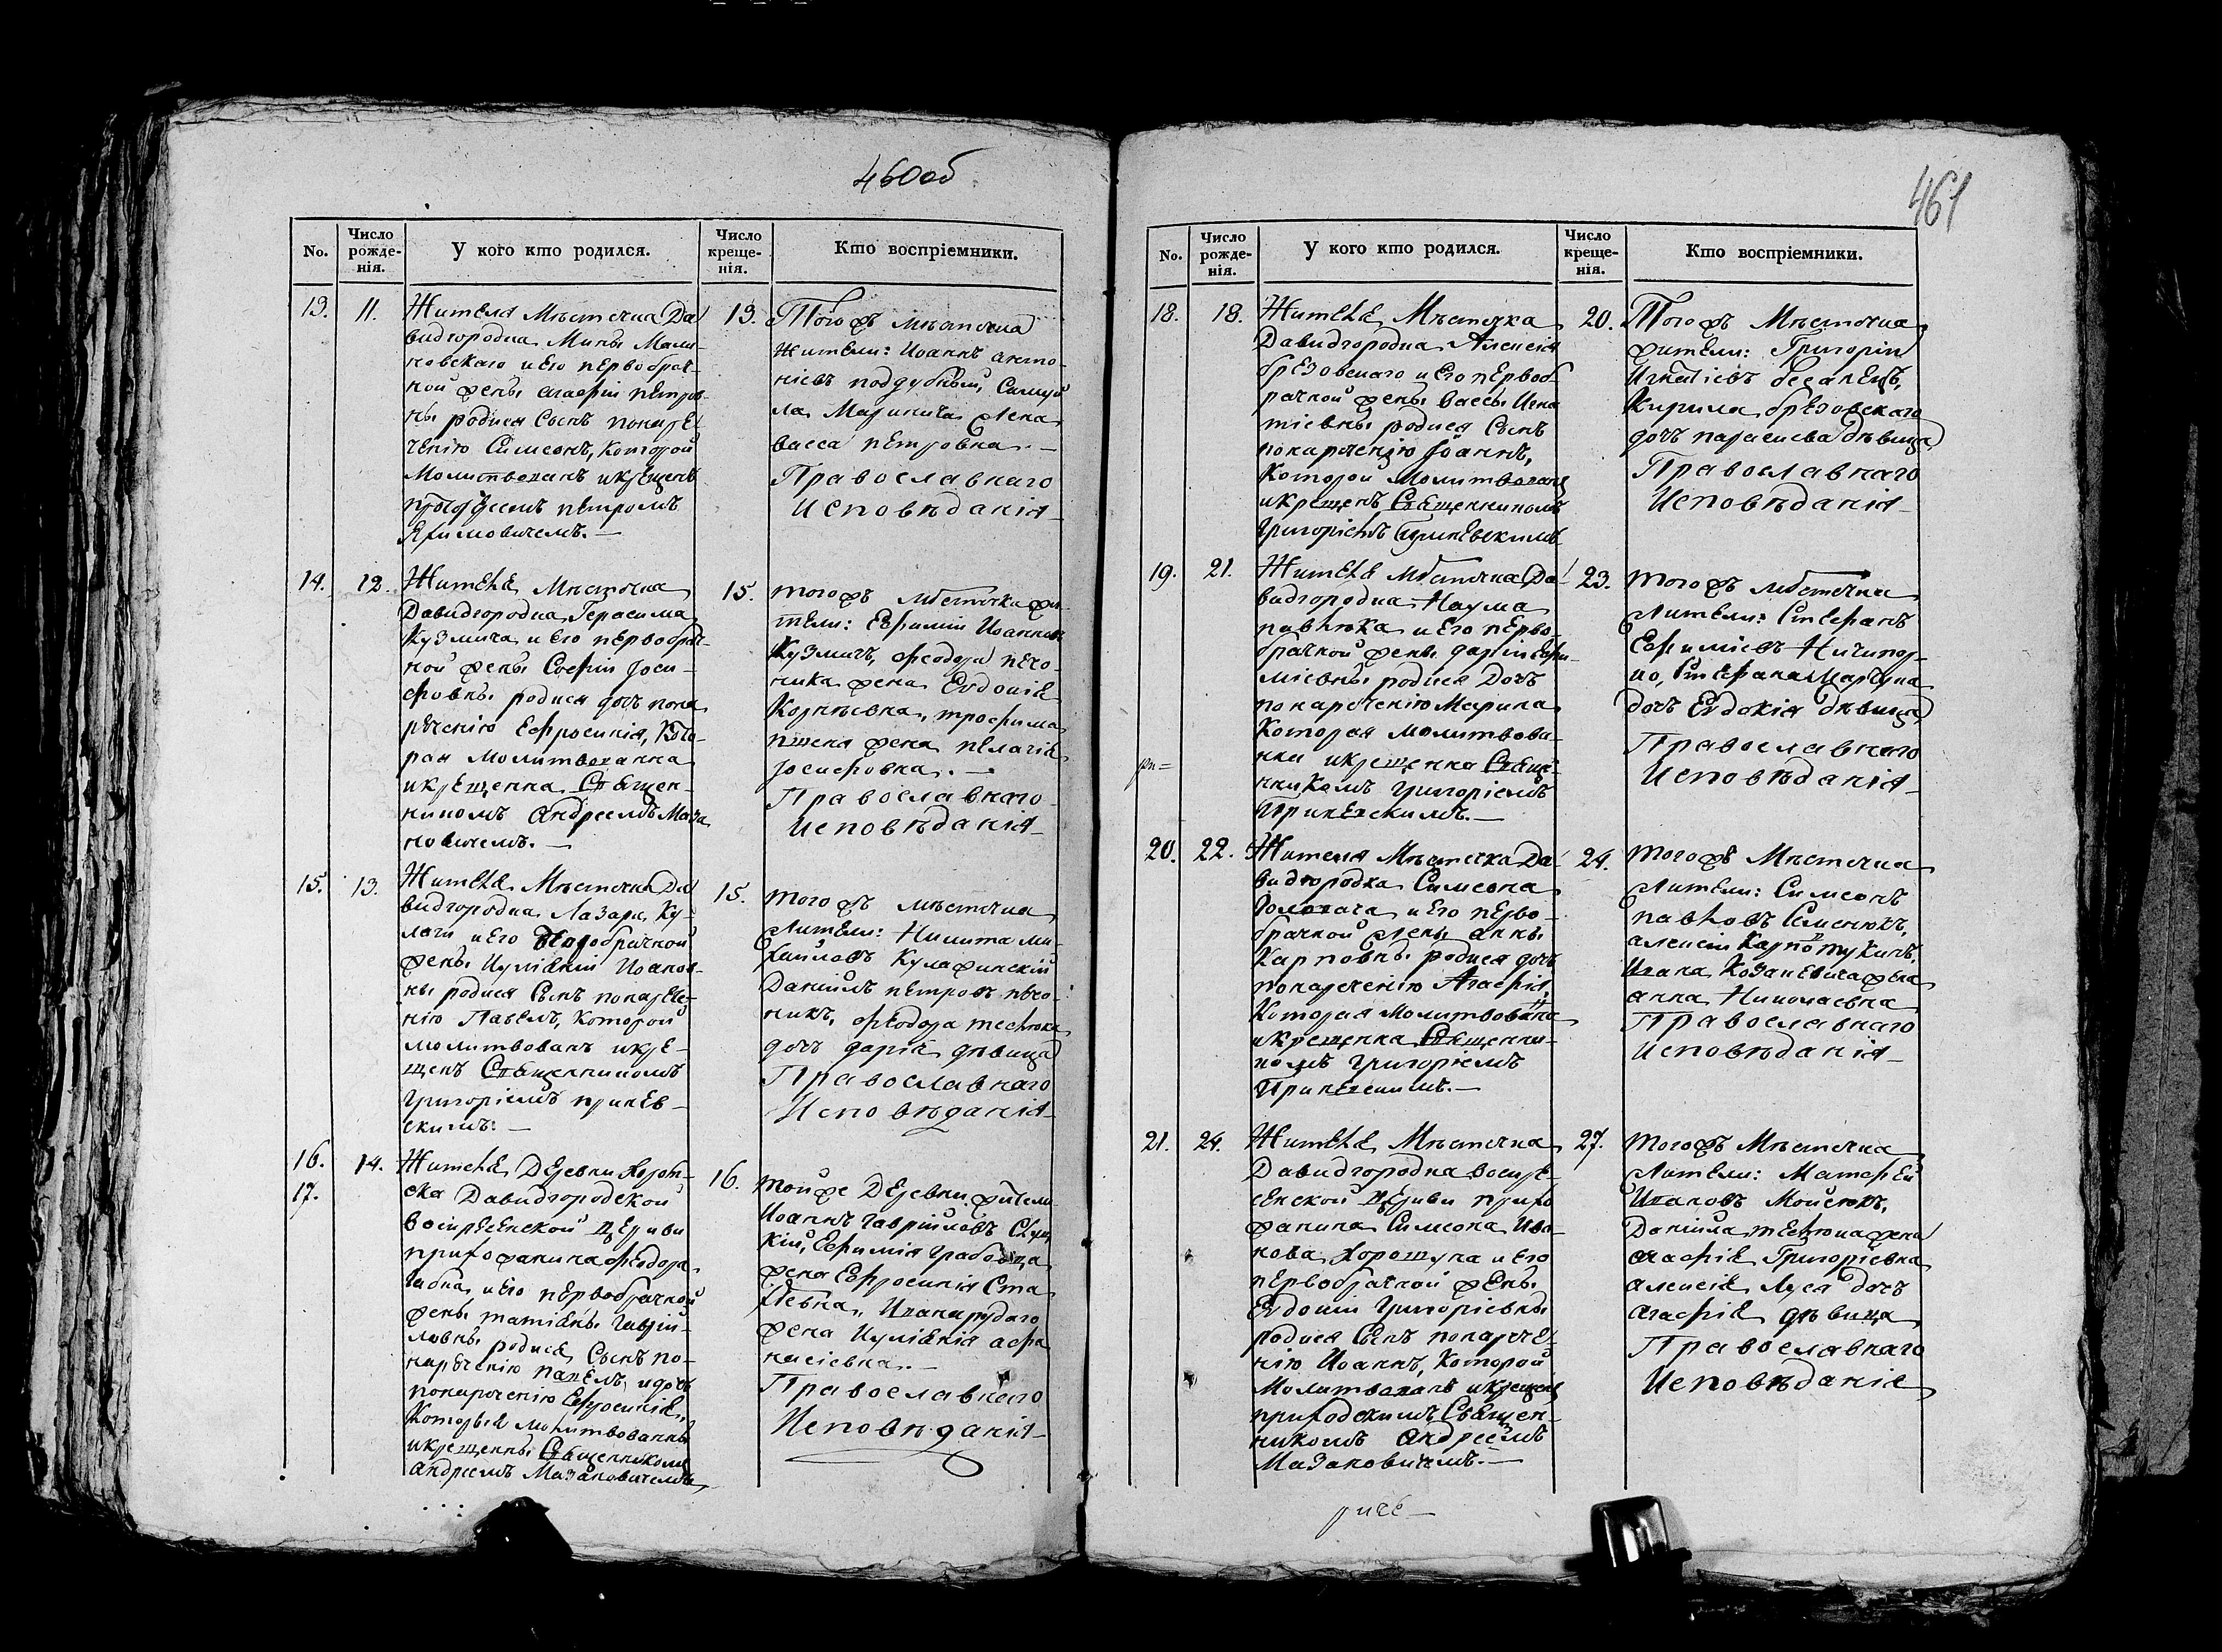 460об
No.
Число рожде-нія.
У кого кто родился.
Число креще-нія.
Кто воспріемники.
13. 11.
Жителя Мѣстечка Да
видгородка Мины Мали-
новскаго и его первобрач-
ной жены агафіи петров-
ны родися Сынъ понаре-
ченію Симеонъ, Которой
Молитвованъ икрещенъ
петромъ
13.
Того жъ мѣстечка
жители: Иоаннъ анто-
ніевъ поддубный, Самуй
ла жена
васса петровна. —
Православнаго
Исповѣданія
14. 12.
Жителя Мѣстечка
Давидгородка Герасима
Кузмича и его первобрач-
ной жены Софіи Іоси-
фовны родися дочь пона
реченію Ефросинія, Кото-
рая Молитвованна
икрещенна Священ-
никомъ андреемъ Маза
новичемъ. —
15.
того жъ мѣстечка жи-
тели: Евфимій Иоанновъ
Кузмичъ, феодора печо-
ника жена Евдокія
Корнѣевна, трофима
жена пелагія
Іосифовна. —
Православнаго
исповѣданія
15. 13.
Жителя Мѣстечка Да
видгородка Лазаря Ку-
лаги и его первобрачной
жены Иуліаніи Иоанов-
ны родися Сынъ понарече-
нію Павелъ, Которой
молитвованъ икре-
щенъ Священникомъ
григоріемъ прилев-
скимъ. —
15.
того жъ мѣстечка
Жители: Никита ми-
хайловъ Кулажинскій
Даніилъ петровъ печо-
никъ, феодора теслюка
дочь дарія дѣвица
Православнаго
Исповѣданія
16.
17.
14.
Жителя Деревни Хоро-
ска Давидгородской
воскресенской церкви
прихожанина феодора
и его первобрачной
жены татіаны гаврій-
ловны родися Сынъ по-
нареченію павелъ, и дочь
понареченію Ефросинія,
Которыя молитвованны
икрещенны Священникомъ
андреемъ Мазановичемъ
16.
той же Деревни жители
Иоаннъ гаврійловъ Слуц
кій, Евфимія
жена Ефросинія
Ивана рудаго
жена Иуліанія афа
насіевна. —
Православнаго
Исповѣданія
461
No.
Число рожде-нія.
У кого кто родился.
Число креще-нія.
Кто воспріемники.
18. 18.
Жителя Мѣстечка
Давидгородка Алексія
брезовскаго и его первоб-
рачной жены вассы Игна
тіевны родися Сынъ
понареченію Іоаннъ,
Которой Молитвованъ
икрещенъ Священникомъ
Григоріемъ
20.
Того жъ Мѣстечка
жители: Григорій
Игнатіевъ
Кирила брезовскаго
дочь параскева дѣвица
Православнаго
Исповѣданія
19. 21.
Жителя Мѣстечка Да-
видгородка Наума
павлюка и его перво-
брачной жены даріи Ефи-
міевны родися Дочь
понареченію Марина
Которая молитвова-
нна икрещенна Свящ-
нникомъ григоріемъ
23.
того жъ мѣстечка
Жители: Стефанъ
Ефиміевъ Ничипор-
ко, Стефана
дочь Евдокія дѣвица
Православнаго
Исповѣданія
20. 22.
Жителя Мѣстечка Да-
видгородка Симеона
Головача и его перво-
брачной жены анны
Карповны родися дочь
понареченію Агафія,
Которая Молитвованна
икрещенна Священни-
комъ григоріемъ
24.
того жъ Мѣстечка
Жители: Симеонъ
павловъ Семенюкъ,
алексій
Ивана Козакевича жена
анна Николаевна
Православнаго
Исповѣданія
21. 24.
Жителя Мѣстечка
Давидгородка воскре-
сенской церкви прихо
жанина Симеона Ива-
нова и его
первобрачной жены
Евдокіи Григоріевны
родися Сынъ, понарече-
нію Иоаннъ, Которой
Молитвованъ икрещенъ
приходскимъ Священ-
никомъ андреемъ
Мазановичемъ. —
27.
того жъ Мѣстечка
Жители: Матфей
Ивановъ Мойсюкъ,
Даніила теслюка жена
агафія Григоріевна
алексія дочь
агафія дѣвица
Православнаго
Исповѣданія